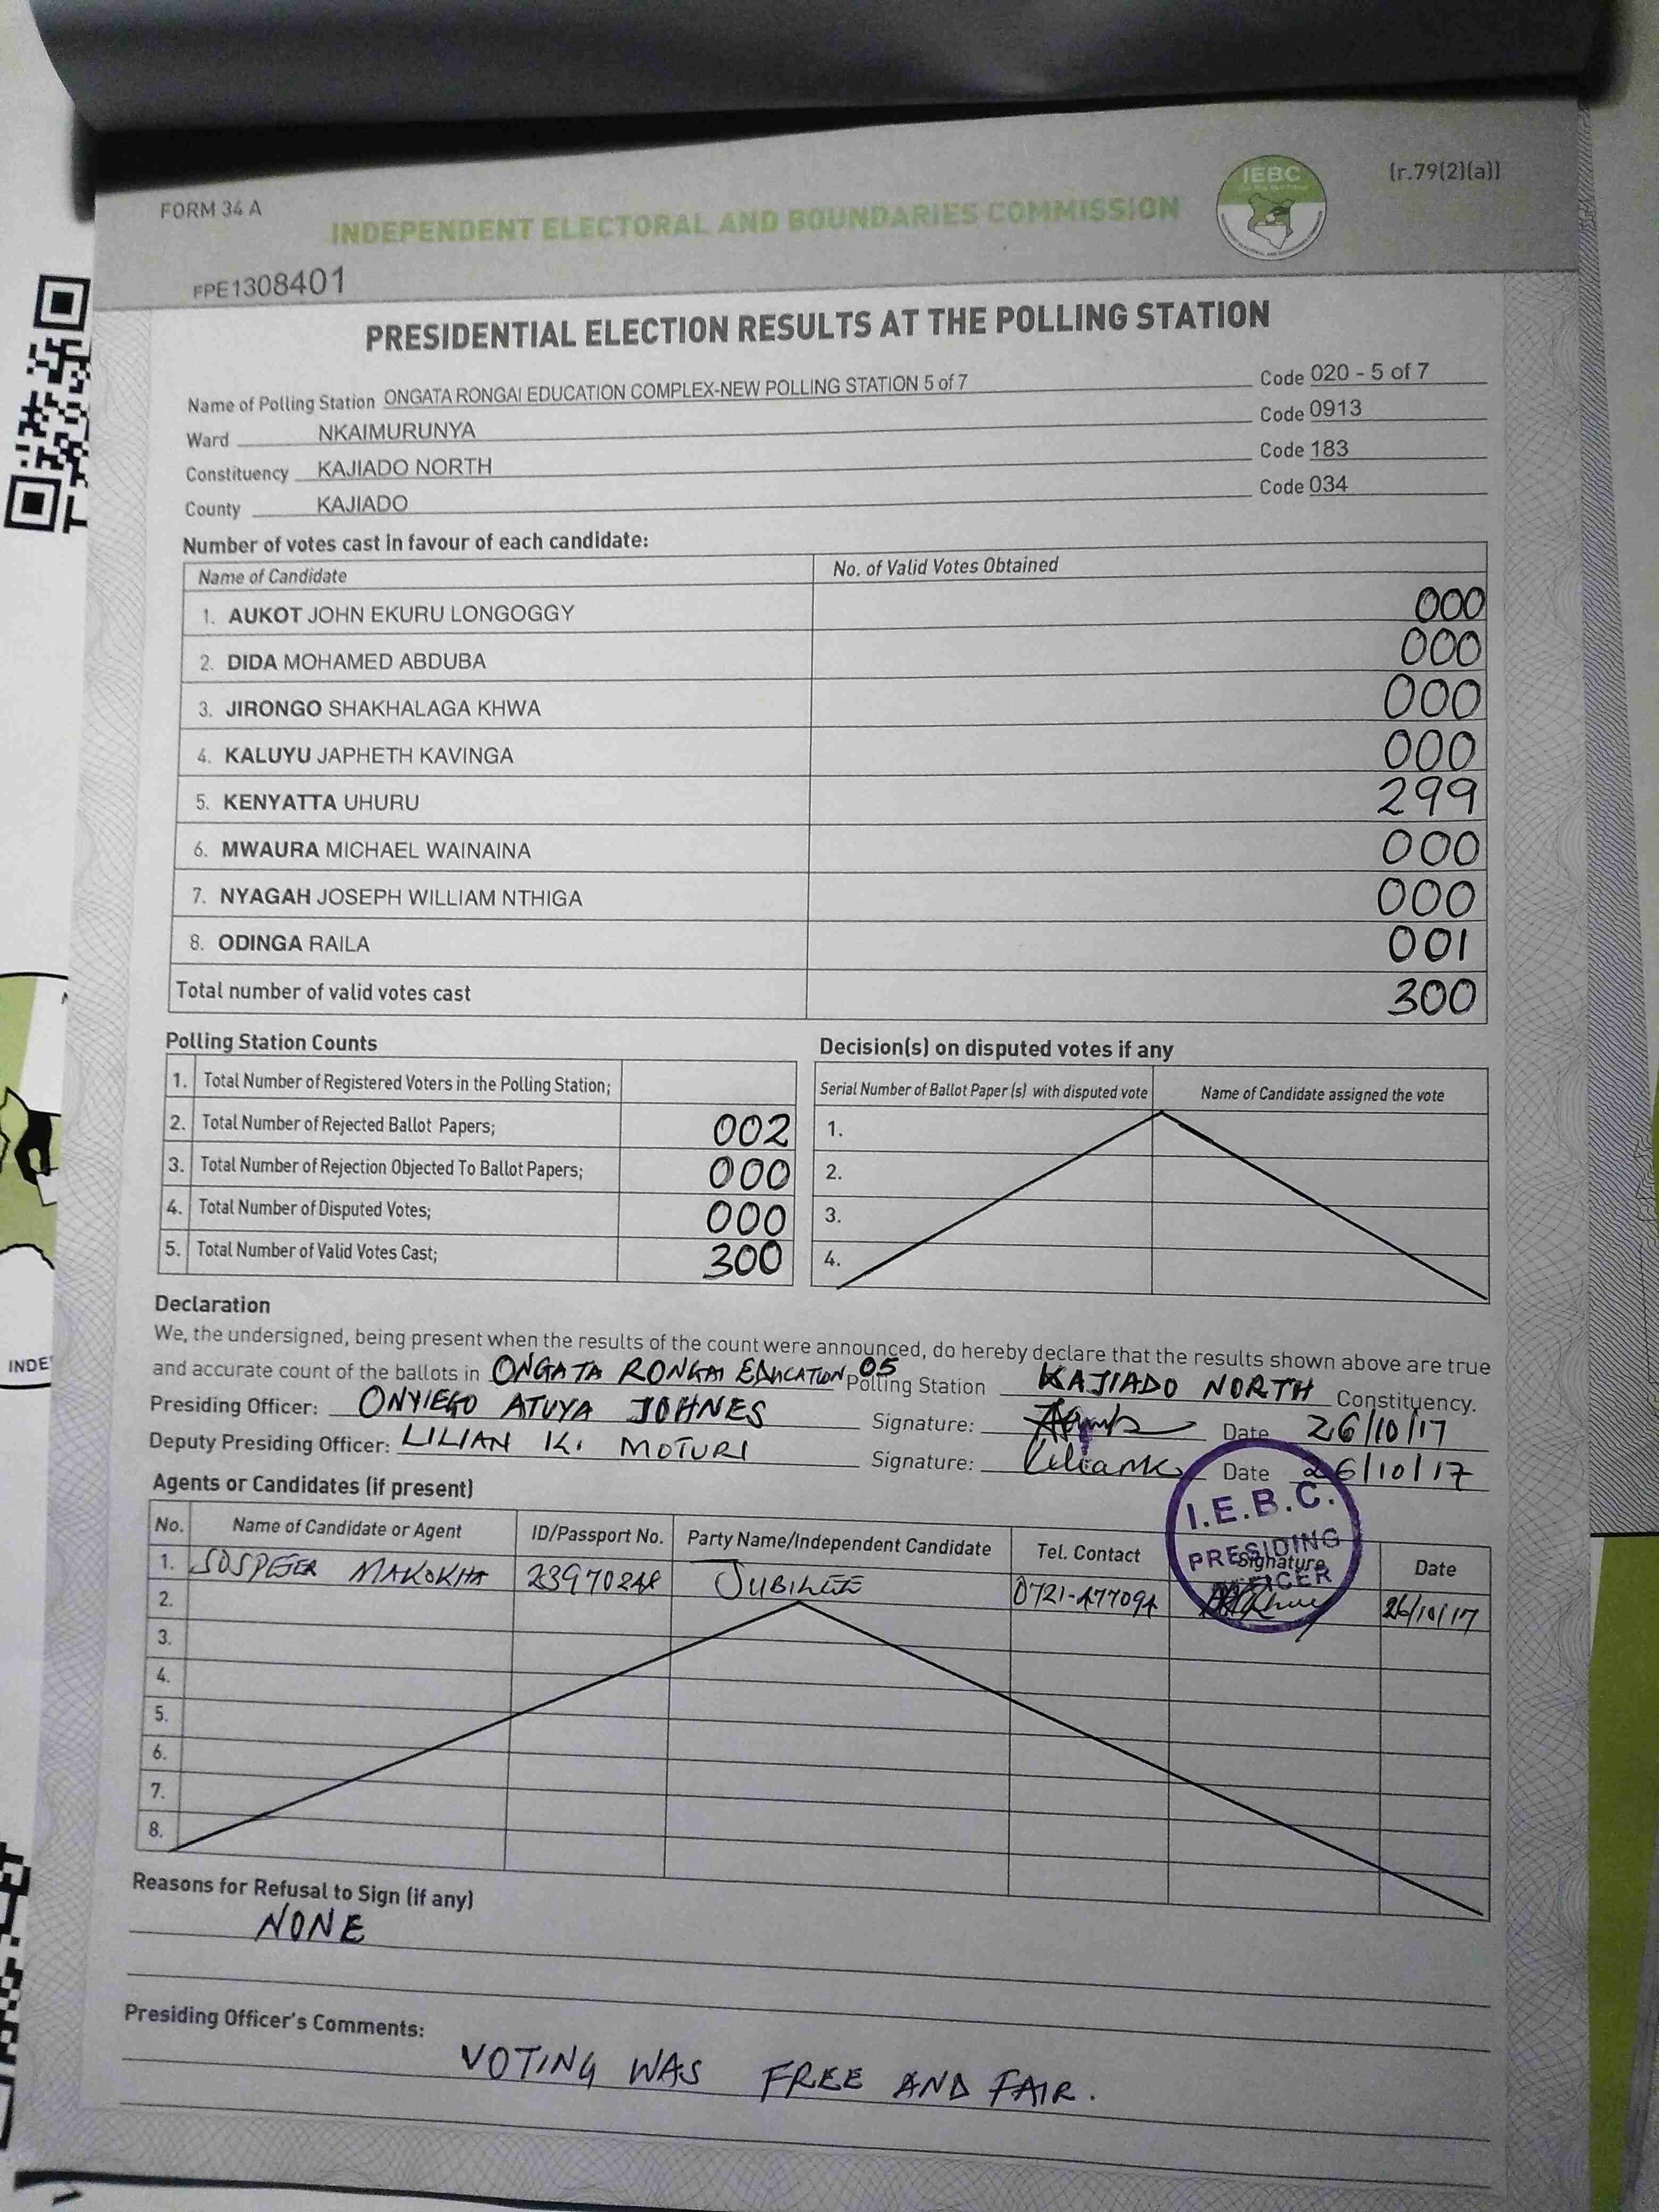 FORM 34 A
(r.79(2)(a))
IEBC
INDEPENDENT ELECTORAL AND BOUNDARIES COMMISSION
FPE1308401
PRESIDENTIAL ELECTION RESULTS AT THE POLLING STATION
Name of Polling Station ONGATA RONGAI EDUCATION COMPLEX-NEW POLLING STATION 5 of 7 Code 020 - 5 of 7
Ward NKAIMURUNYA Code 0913
Constituency KAJIADO NORTH Code 183
County KAJIADO Code 034
Number of votes cast in favour of each candidate:
Name of Candidate No. of Valid Votes Obtained
1. AUKOT JOHN EKURU LONGOGGY 000
2. DIDA MOHAMED ABDUBA 000
3. JIRONGO SHAKHALAGA KHWA 000
4. KALUYU JAPHETH KAVINGA 000
5. KENYATTA UHURU 299
6. MWAURA MICHAEL WAINAINA 000
7. NYAGAH JOSEPH WILLIAM NTHIGA 000
8. ODINGA RAILA 001
Total number of valid votes cast 300
Polling Station Counts
1. Total Number of Registered Voters in the Polling Station;
2. Total Number of Rejected Ballot Papers; 002
3. Total Number of Rejection Objected To Ballot Papers; 000
4. Total Number of Disputed Votes; 000
5. Total Number of Valid Votes Cast; 300
Decision(s) on disputed votes if any
Serial Number of Ballot Paper (s) with disputed vote Name of Candidate assigned the vote
1.
2.
3.
4.
Declaration
We, the undersigned, being present when the results of the count were announced, do hereby declare that the results shown above are true
and accurate count of the ballots in ONGATA RONGAI EDUCATION 05 Polling Station KAJIADO NORTH Constituency.
Presiding Officer: ONYIEGO ATUYA JOHNES Signature: Date 26/10/17
Deputy Presiding Officer: LILIAN K. MOTURI Signature: Date 26/10/17
Agents or Candidates (if present)
No. Name of Candidate or Agent ID/Passport No. Party Name/Independent Candidate Tel. Contact Signature Date
1. SOSPETER MAKOKHA JUBILEE 0721-477094 26/10/17
2.
3.
4.
5.
6.
7.
8.
I.E.B.C.
PRESIDING
OFFICER
Reasons for Refusal to Sign (if any)
NONE
Presiding Officer's Comments:
VOTING WAS FREE AND FAIR.
INDE